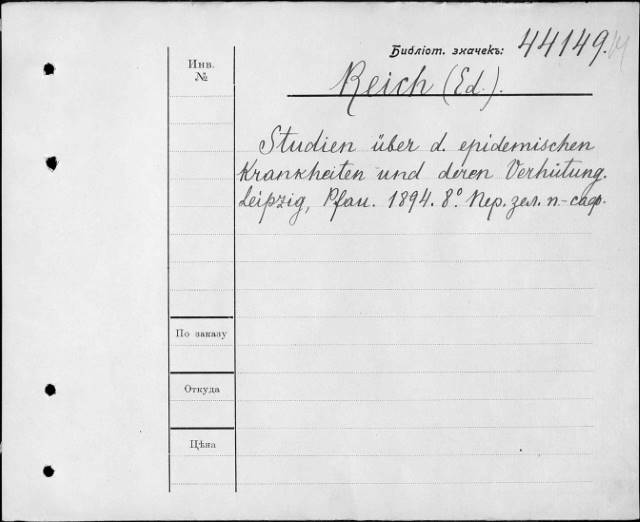 Библіот. значекъ: 44149.
Инв.
№
Reich (Ed.).
Studien über d. epidemischen
Krankheiten und deren Verhütung.
Leipzig, Pfau. 1894. 8º. Пер. зел. п.-саф.
По заказу
Откуда
Цѣна